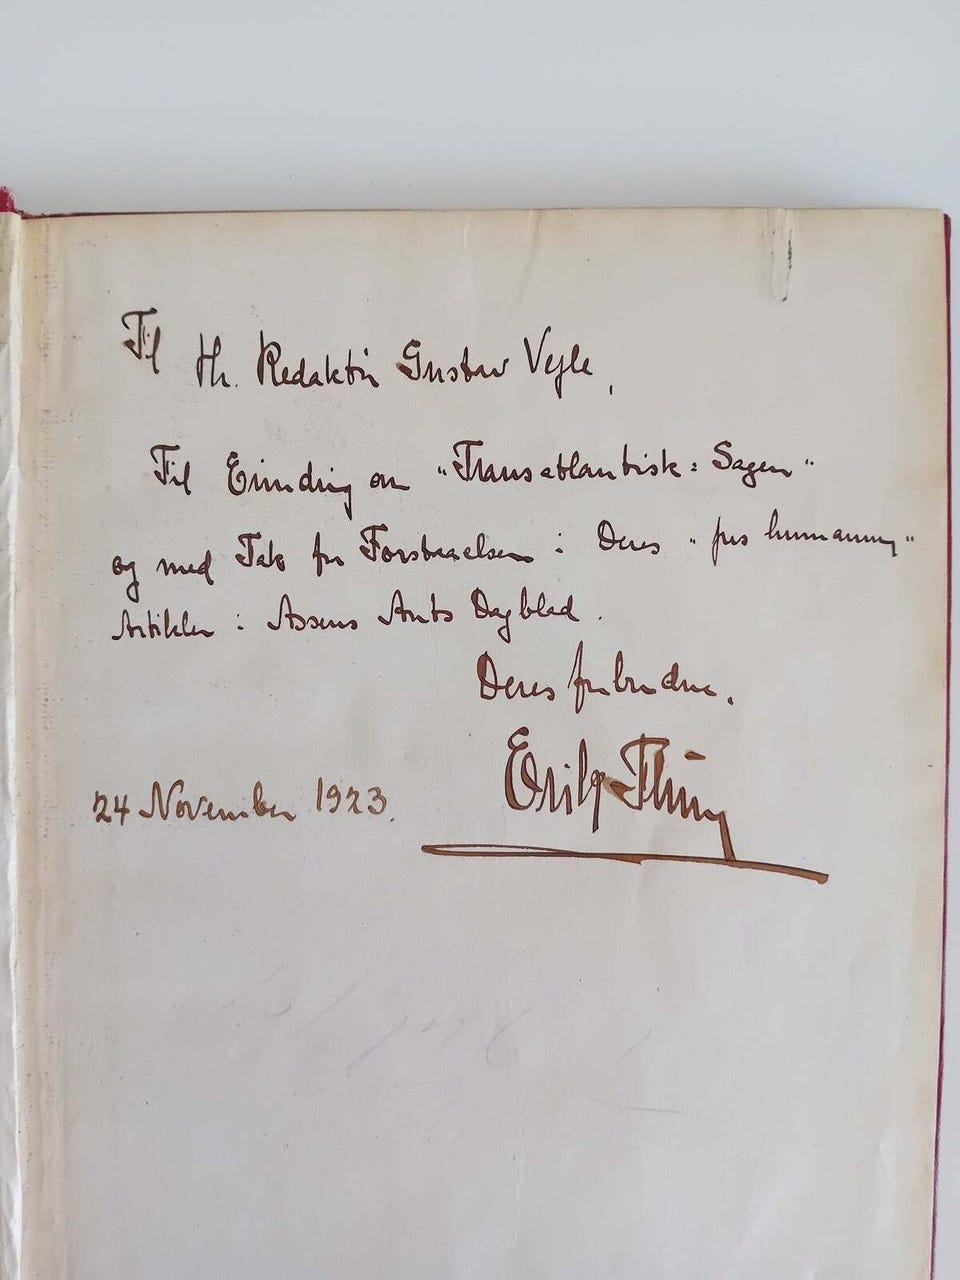 Til Hr. Redaktør Gustav Vejle,
Til Erindring om "Transatlantisk = Sagen"
og med Tak for Forstaaelsen i Deres "pro humanum"
Artikler i Assens Amts Dagblad.
Deres forbundne.
24 November 1923.